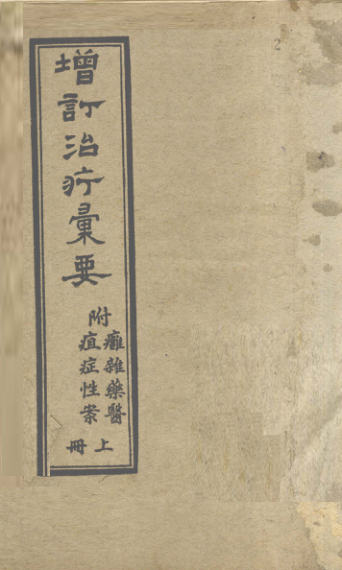 增訂治疔彙要
附
癰疽
雜症
藥性
醫案
上冊